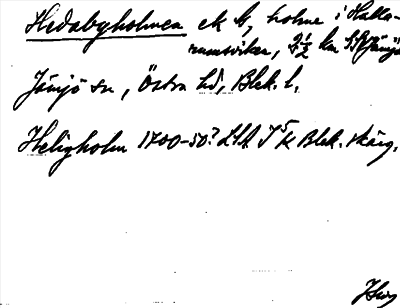 Hedabyholmen ek kr, holme i Halla-
rumsviken, 2½ km SSV Jämjö
Jämjö sn, Östra hd, Blek. l.
Heligholm 1700-50? Blek. skärg.